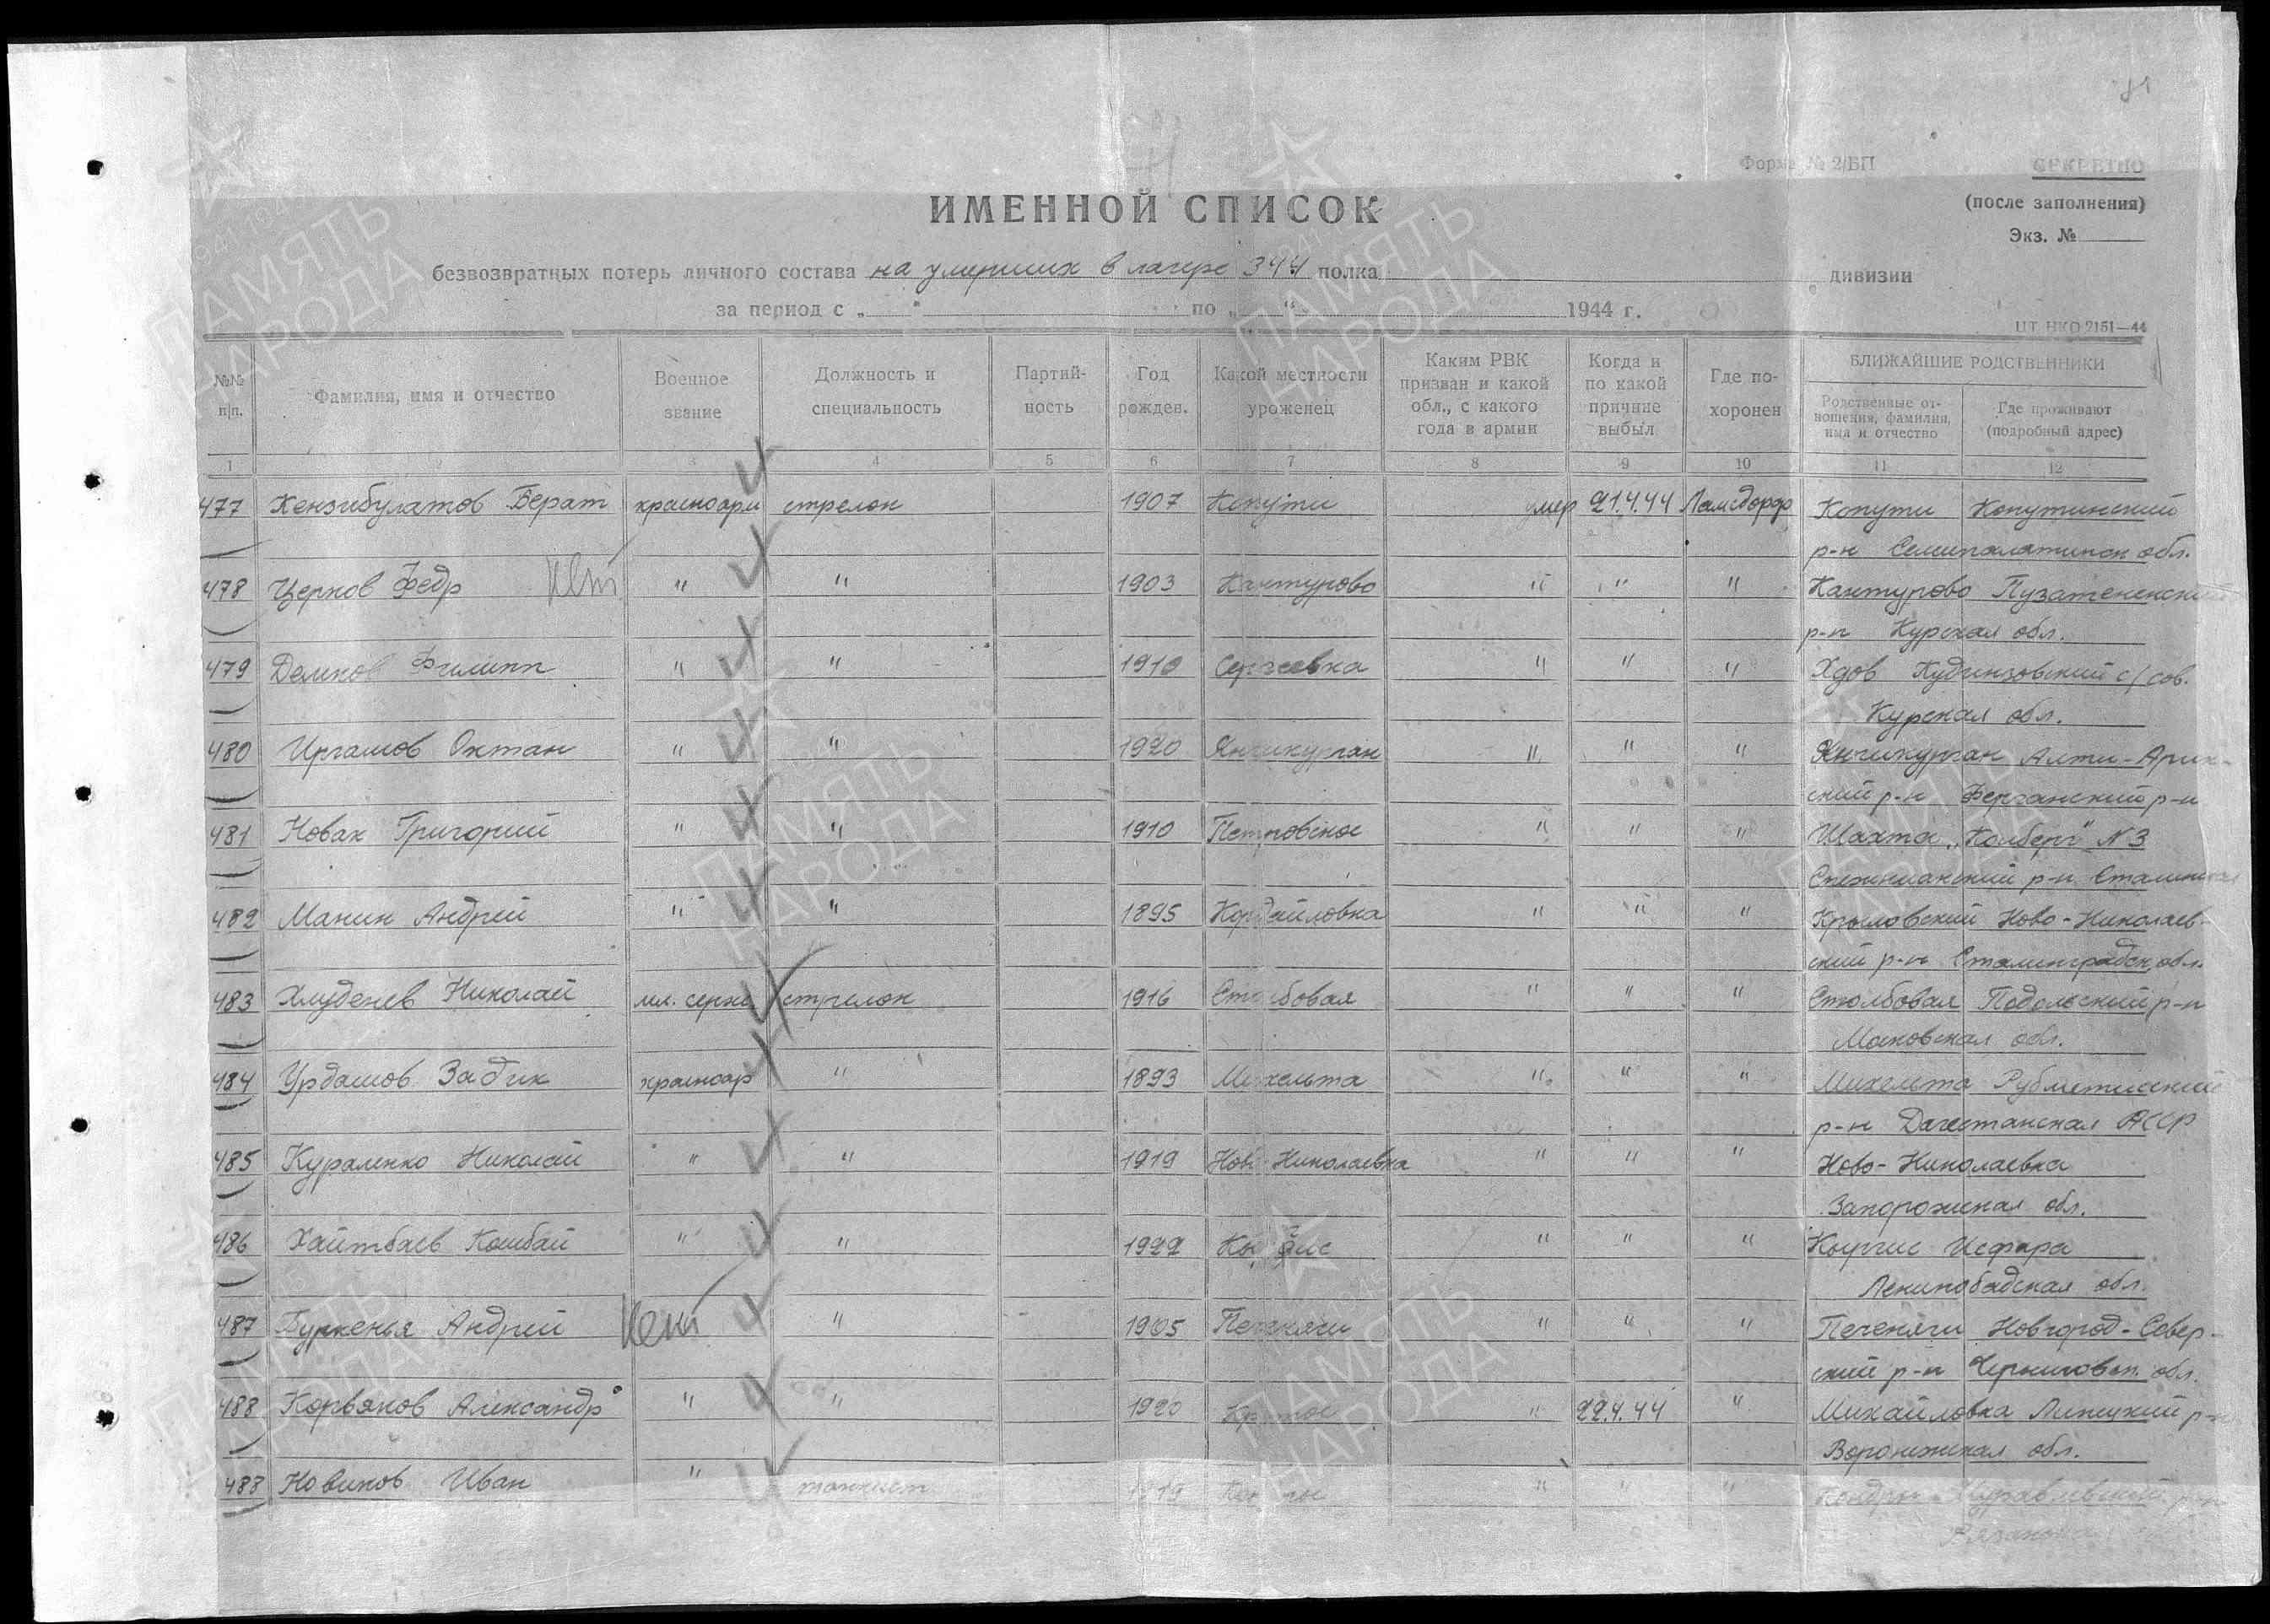 Форма № 2/БП
СЕКРЕТНО
(после заполнения)
Экз. №
ИМЕННОЙ СПИСОК
безвозвратных потерь личного состава на умерших в лагере 344 полка дивизии
за период с „ “ по „ “ 1944 г.
ЦТ НКО 2151—44
№№ п/п. Фамилия, имя и отчество Военное звание Должность и специальность Партий-ность Год рожден. Какой местности уроженец Каким РВК призван и какой обл., с какого года в армии Когда и по какой причине выбыл Где по-хоронен БЛИЖАЙШИЕ РОДСТВЕННИКИ
Родственные от-ношения, фамилия, имя и отчество Где проживают (подробный адрес)
1 2 3 4 5 6 7 8 9 10 11 12
477 Кензибулатов Берат красноарм стрелок 1907 Копути умер 21.4.44 Ламсдорф Копути Копутинский
р-н Семипалатинск обл.
478 Церков Федр " " 1903 Кантурово " " " Кантурово
р-н Курская обл.
479 Демков Филипп " " 1910 Сергеевка " " " с/сов.
Курская обл.
480 Иргашов Октан " " 1920 Янгикурган " " " Янгикурган Алты-Арик-
ский р-н Ферганский р-н
481 Новак Григорий " " 1910 Петровское " " " Шахта „Колберг" N 3
р-н Сталинская
482 Манин Андрей " " 1895 Кордайловка " " " Крыловский Ново-Николаев-
ский р-н Сталинградск. обл.
483 Хлуденев Николай мл. серж стрелок 1916 Столбовая " " " Столбовая Подольский р-н
Московская обл.
484 Урдашов Задик красноар " 1893 Михельта " " " Михельта
р-н Дагестанская АССР
485 Кураленко Николай " " 1919 Ново-Николаевка " " " Ново-Николаевка
Запорожская обл.
486 Хайтбаев Кошбай " " 1922 " " " Исфара
Ленинобадская обл.
487 Буркенья Андрей " 1905 Печеняги " " " Печеняги Новгород-Север-
ский р-н Черниговск. обл.
488 Корвяков Александр " " 1920 " 22.4.44 " Михайловка Липецкий р-н
Воронежская обл.
488 Новиков Иван " танкист 1919 " " "
ПАМЯТЬ
НАРОДА